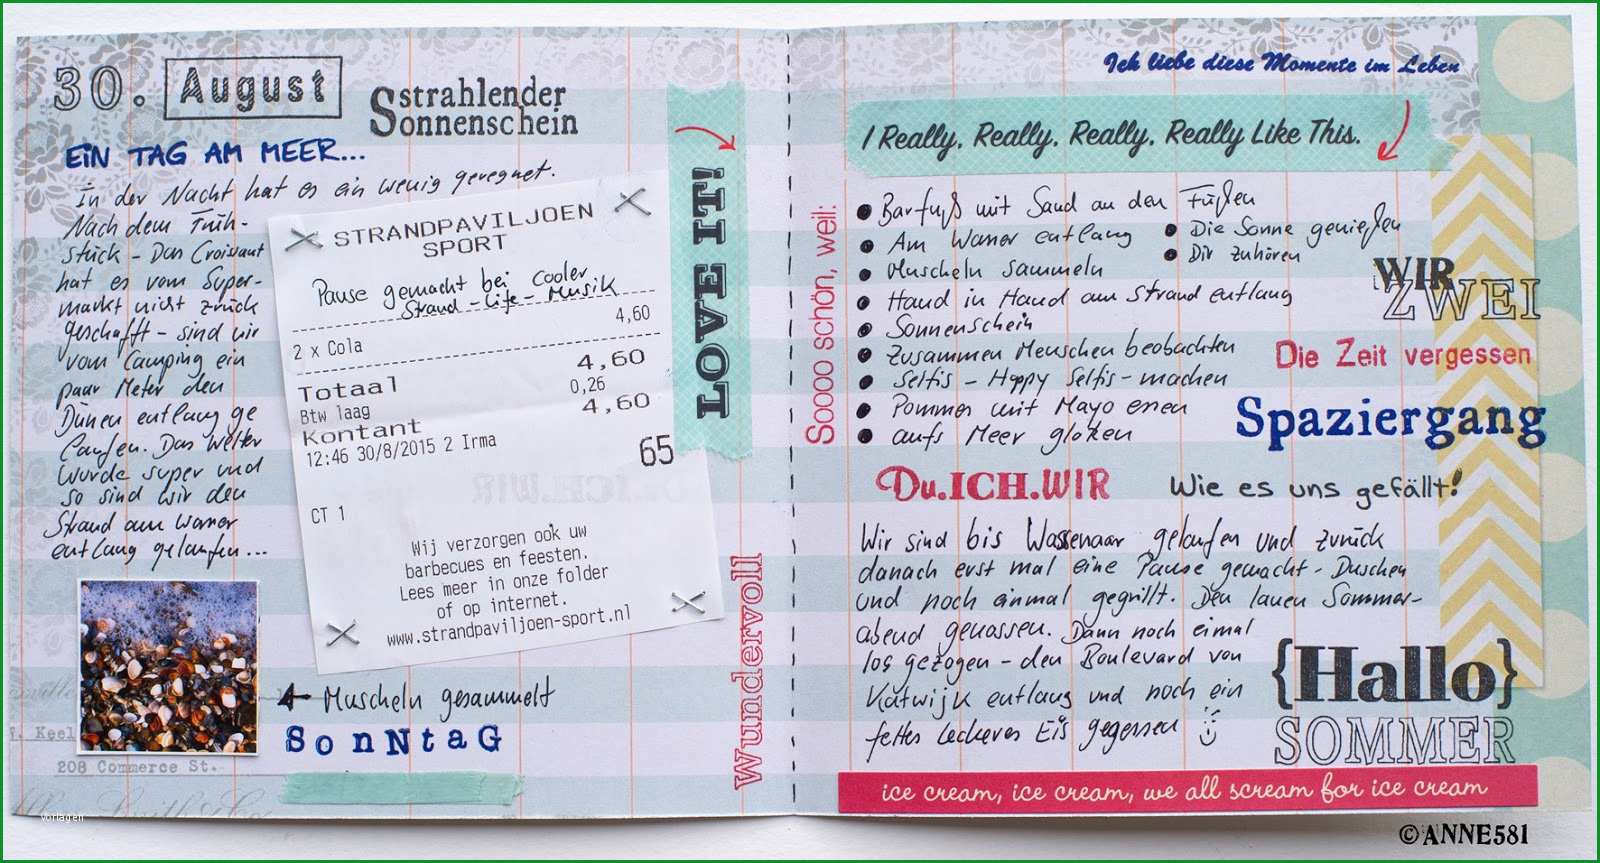 30. August
Sstrahlender
Sonnenschein
EIN TAG AM MEER...
In der Nacht hat es ein wenig geregnet.
Nach dem Früh-
stück - Das Croissant
hat es vom Super-
markt nicht zurück
geschafft - sind wir
vom Camping ein
paar Meter den
Dünen entlang ge
laufen. Das Wetter
wurde super und
so sind wir den
Strand am Wasser
entlang gelaufen...
STRANDPAVILJOEN
SPORT
Pause gemacht bei cooler
Strand-Life-Musik
4,60
2 x Cola
Totaal 4,60
Btw laag 0,26
Kontant 4,60
12:46 30/8/2015 2 Irma
65
CT 1
Wij verzorgen ook uw
barbecues en feesten.
Lees meer in onze folder
of op internet.
www.strandpaviljoen-sport.nl
LOVE IT!
Muscheln gesammelt
SonNtaG
Wundervoll
208 Commerce St.
vorlagen
Ich liebe diese Momente im Leben
I Really. Really. Really. Really Like This.
Soooo schön, weil:
Barfuß mit Sand an den Füßen
Am Wasser entlang
Die Sonne genießen
Muscheln sammeln
Dir zuhören
Hand in Hand am Strand entlang
Sonnenschein
Zusammen Menschen beobachten
Selfis - Happy Selfis - machen
Pommes mit Mayo essen
aufs Meer glotzen
WIR
ZWEI
Die Zeit vergessen
Spaziergang
Du.ICH.WIR
Wie es uns gefällt!
Wir sind bis Wassenaar gelaufen und zurück
danach erst mal eine Pause gemacht - Duschen
und noch einmal gegrillt. Den lauen Sommer-
abend genossen. Dann noch eimal
los gezogen - den Boulevard von
Katwijk entlang und noch ein
fettes leckeres Eis gegessen
{Hallo}
SOMMER
ice cream, ice cream, we all scream for ice cream
©ANNE581